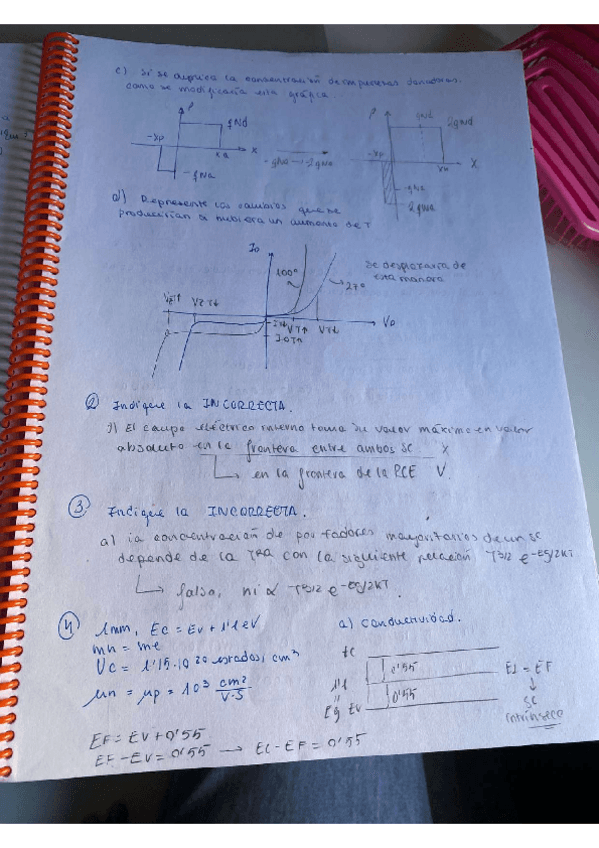 c) Si se duplica la concentración de impurezas donadoras.
como se modificaría esta gráfica.
ρ
qNd
-xp
xn
x
-qNa
-qNa → -2qNa
ρ
qNd
2qNd
-xp
xn
x
-qNa
2qNa
d) Represente los cambios que se
producirían si hubiera un aumento de T
ID
100°
27°
Se desplazaría de
esta manera
VZT↓
VT↑
VT↓
IOT↑
VD
② Indique la INCORRECTA.
) El campo eléctrico interno toma su valor máximo en valor
absoluto en la frontera entre ambos SC X
en la frontera de la RCE V.
③ Indique la INCORRECTA.
a) la concentración de portadores mayoritarios de un SC
depende de la TRA con la siguiente relación T3/2 e-Eg/2KT
falso, ni ∝ T3/2 e-Eg/2KT
④ 1mm, Ec = Ev + 1'1 eV
mn = me
a) Conductividad.
μn = μp = 10³ cm²/V·s
0'55
1'1
0'55
Eg
Ev
Ei = EF
SC
intrínseco
EF = EV + 0'55
EF - EV = 0'55 → EC - EF = 0'55